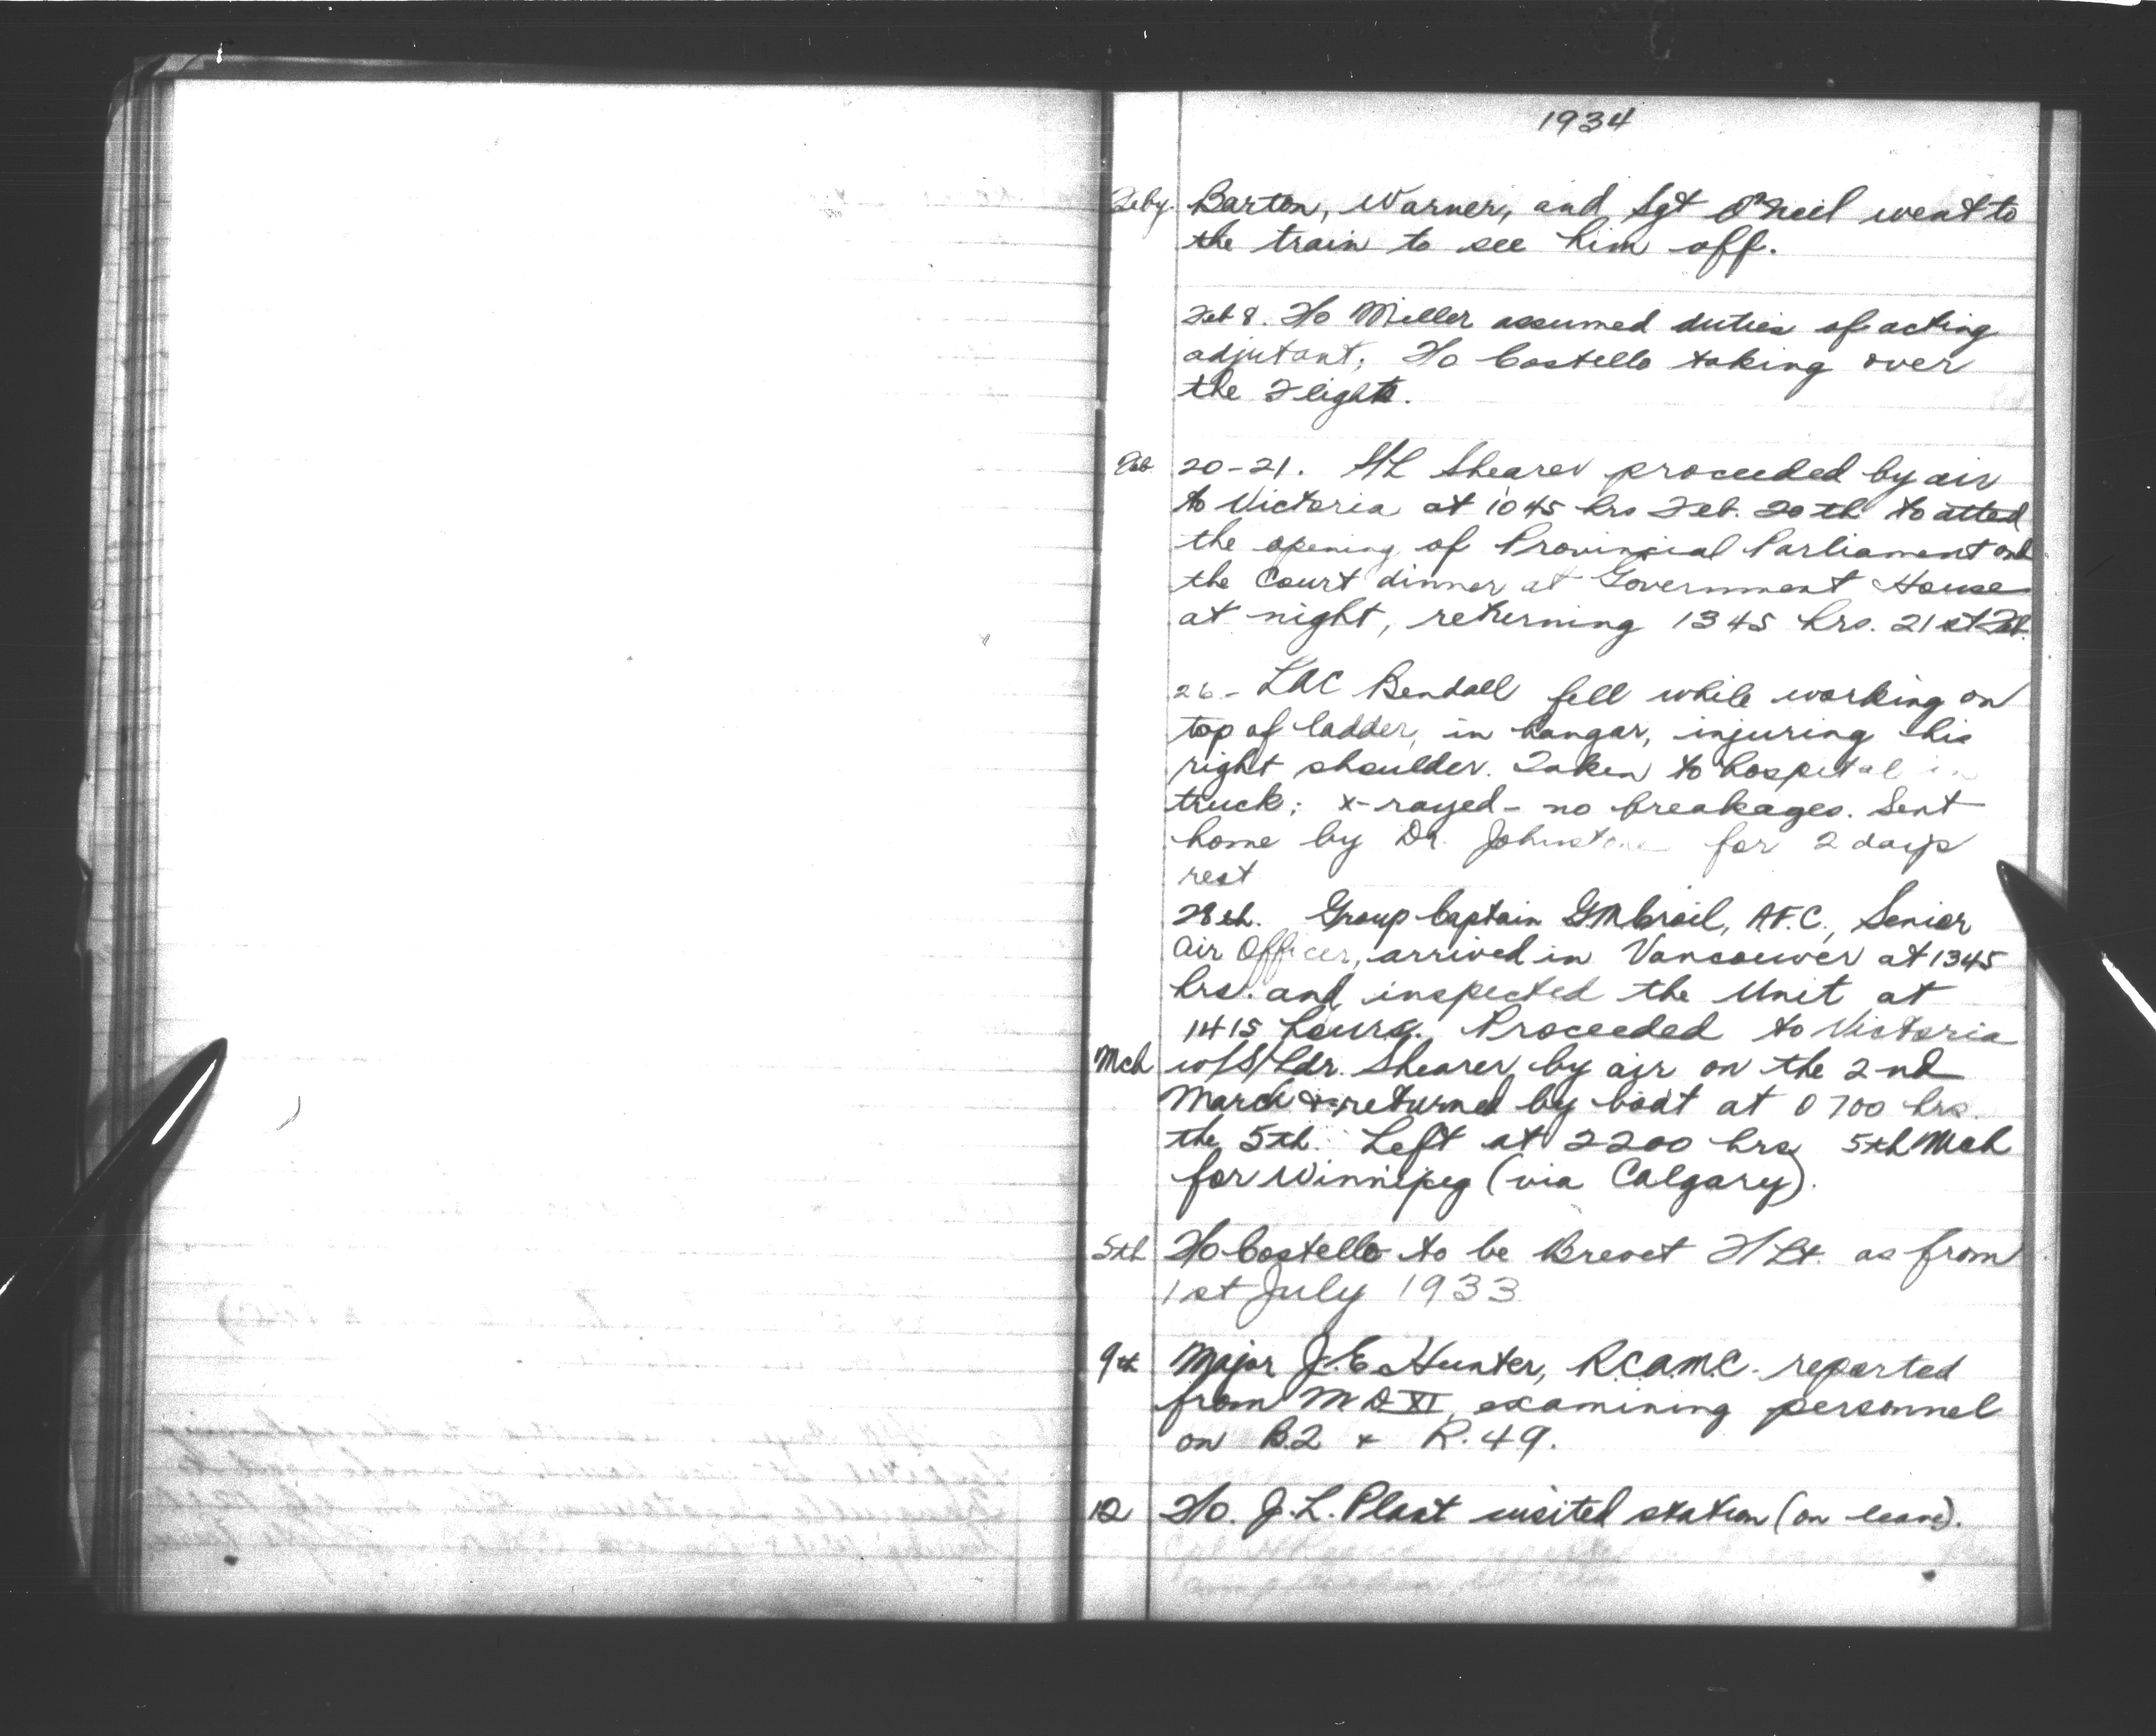 1934
Feby. Barton, Warner, and Sgt O'Neil went to
the train to see him off.
Feb 8. F/o Miller assumed duties of acting
adjutant, F/o Costello taking over
the Flight.
Feb 20-21. S/L Shearer proceeded by air
to Victoria at 1045 hrs Feb. 20th to atted
the opening of Provincial Parliament and
the Court dinner at Government House
at night, returning 1345 hrs. 21st Feb.
26 - LAC Bendall fell while working on
top of ladder, in hangar, injuring his
right shoulder. Taken to hospital in
truck; x-rayed - no breakages. Sent
home by Dr. Johnstone for 2 days
rest
28th. Group Captain G.M Croil, A.F.C., Senior
Air Officer, arrived in Vancouver at 1345
hrs. and inspected the Unit at
1415 hours. Proceeded to Victoria
Mch w/S/Ldr. Shearer by air on the 2nd
March & returned by boat at 0700 hrs.
the 5th. Left at 2200 hrs 5th Mch
for Winnipeg (via Calgary).
5th F/o Costello to be Brevet F/Lt. as from
1st July 1933
9th Major J.E. Hunter, R.C.A.M.C. reported
from M D XI, examining personnel
on B.2 & R.49.
12 F/o. J.L. Plant visited station (on leave).